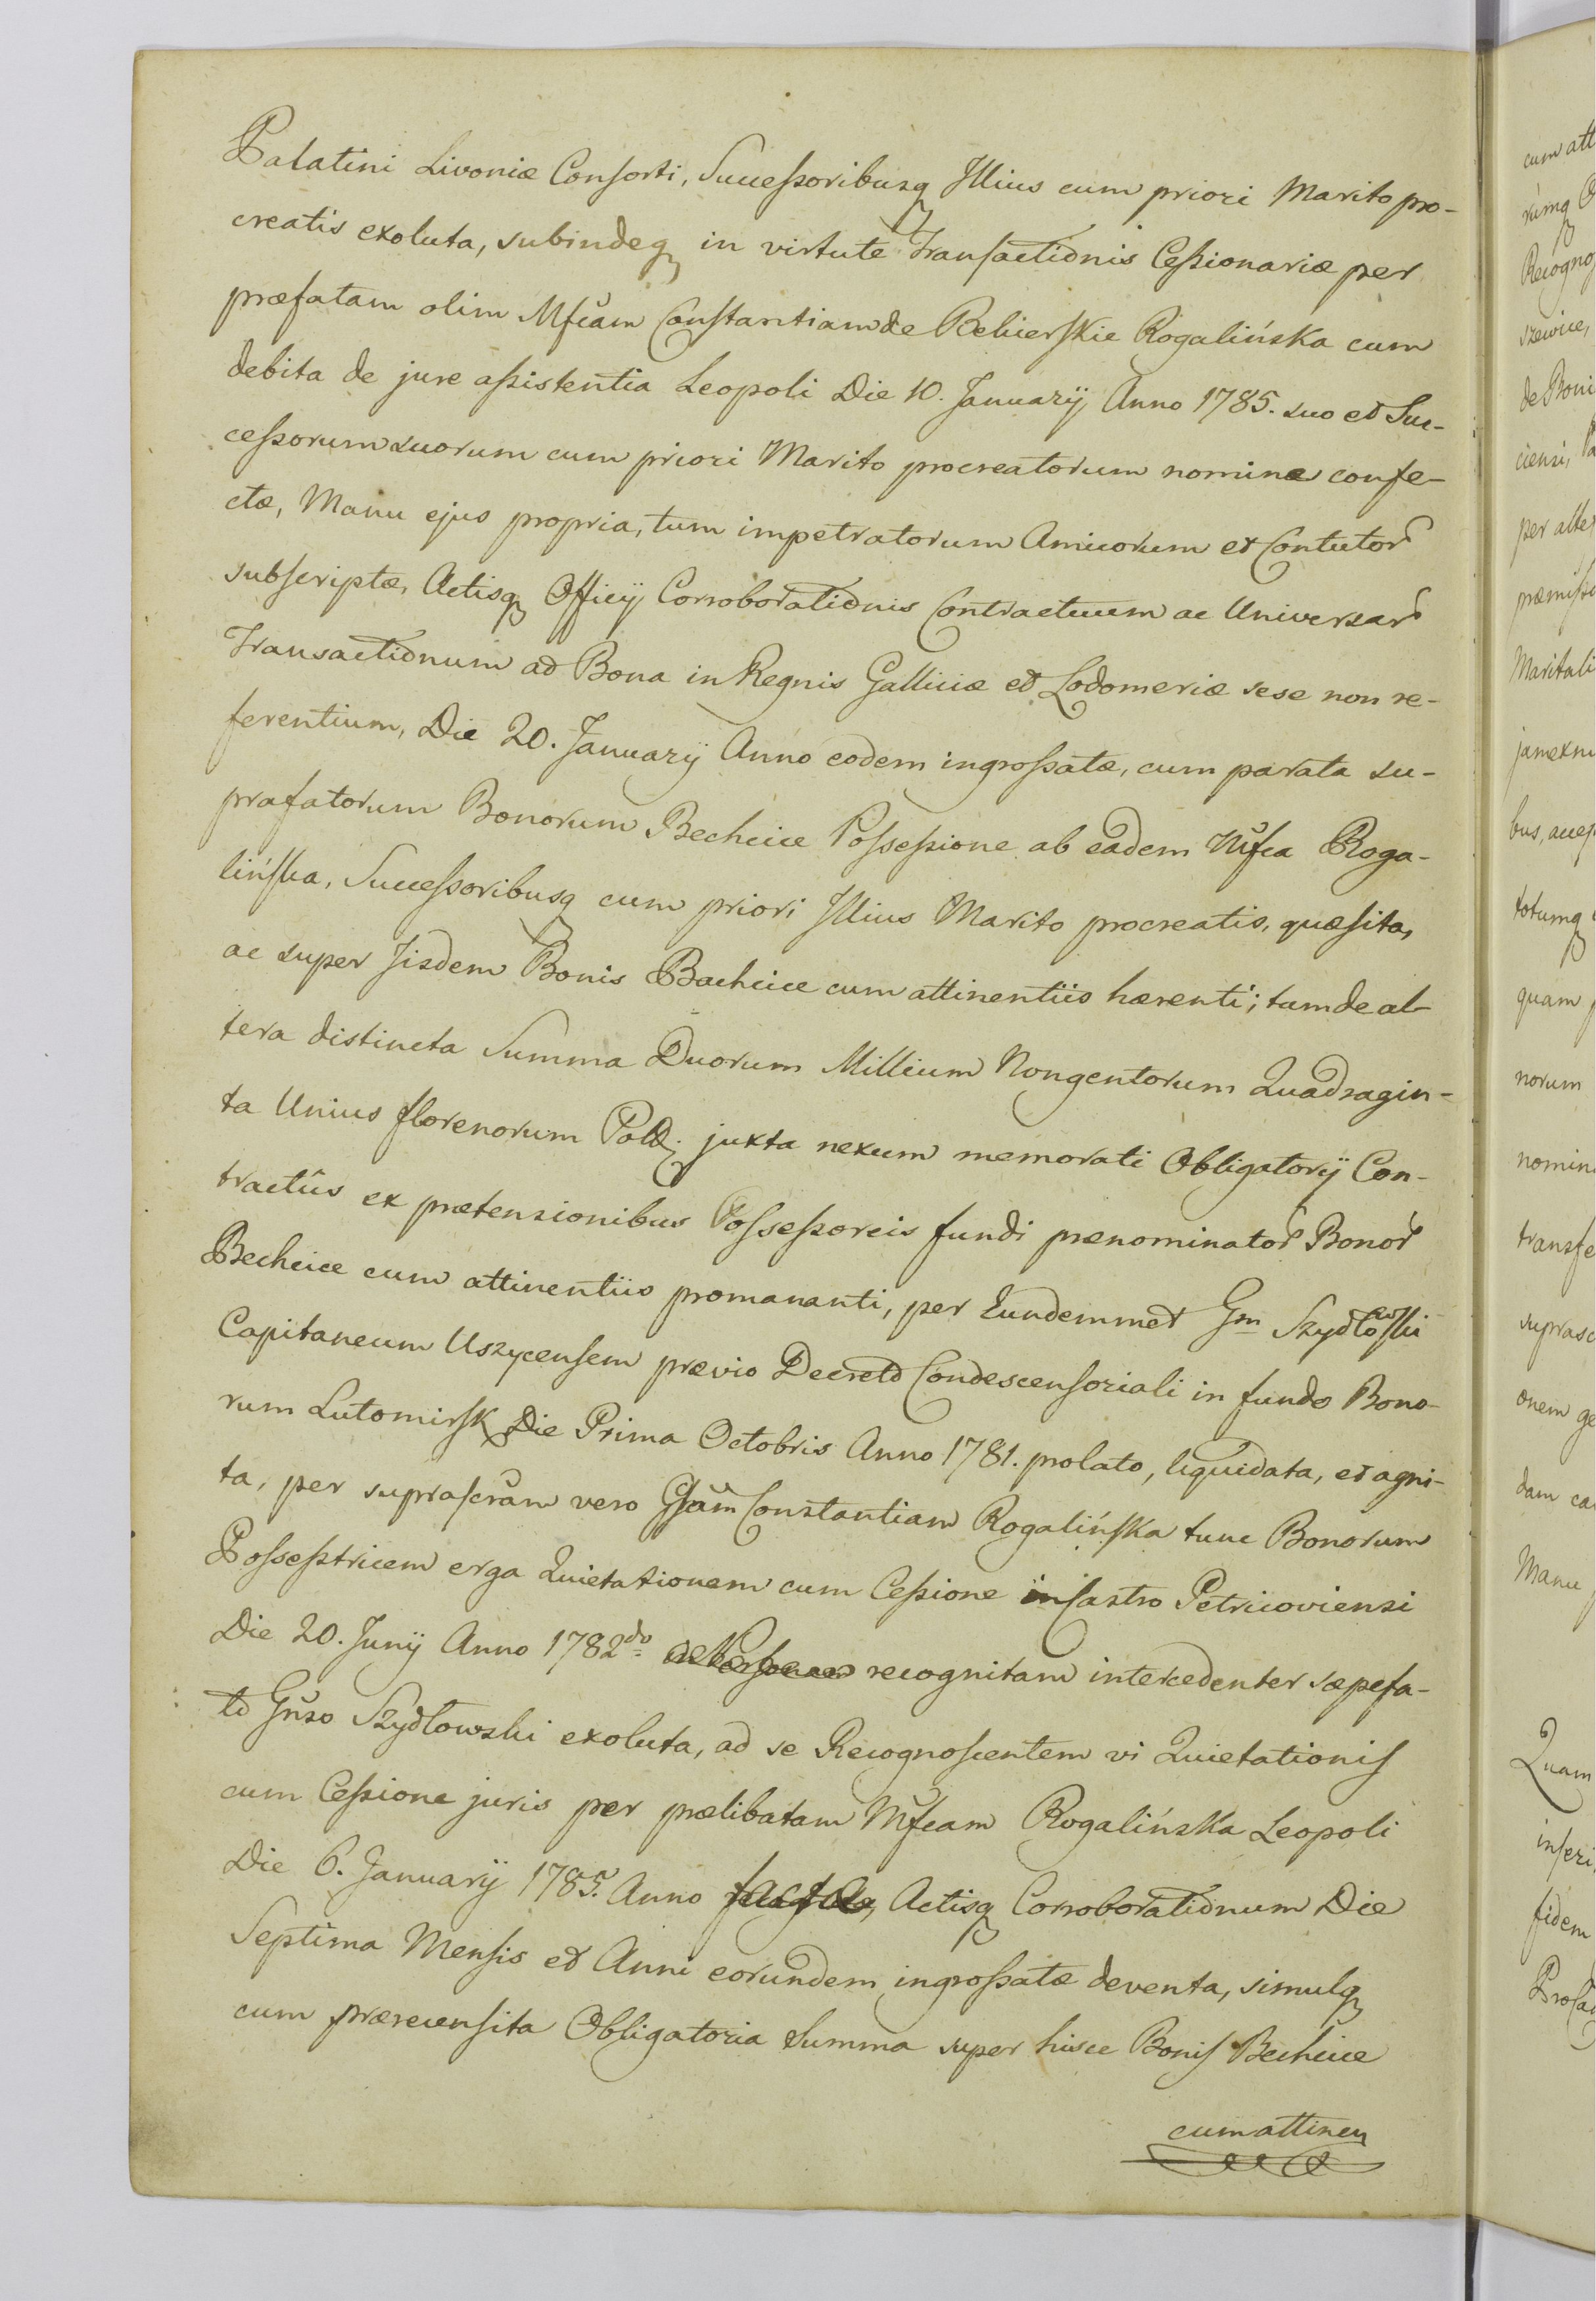 Palatini Livoniæ Consorti, Successoribusq Illius cum priori Marito pro-
creatis exoluta, subindeq in virtute Transactionis Cessionariæ per
præfatam olim Mfcam Constantiam de Bekierskie Rogalińska cum
debita de jure assistentia Leopoli Die 10. Januarij Anno 1785. suo et Suc-
cessorum suorum cum priori Marito procreatorum nomine confe-
ctæ, Manu ejus propria, tum impetratorum Amicorum et Contutor
subscriptæ, Actisq Officij Corroborationis Contractuum ac Universar
Transactionum ad Bona in Regnis Galliciæ et Lodomeriæ sese non re-
ferentium, Die 20. Januarij Anno eodem ingrossatæ, cum parata su-
prafatorum Bonorum Bechcice Possessione ab eadem Mfca Roga-
lińska, Successoribusq cum priori Illius Marito procreatis, quæsita,
ac super Iisdem Bonis Bachcice cum attinentiis hærenti; tum de al-
tera distincta Summa Duorum Millium Nongentorum Quadragin-
ta Unius florenorum Pold. juxta nexum memorati Obligatorij Con-
tractûs ex prætensionibus Possessoreis fundi prænominator Bonor
Bechcice cum attinentiis promananti, per Eundemmet Gm Szydłowski
Capitaneum Uszycensem prævio Decreto Condescensoriali in fundo Bono-
rum Lutomirsk Die Prima Octobris Anno 1781. prolato, liquidata, et agni-
ta, per suprascram vero Gsam Constantiam Rogalińska tunc Bonorum
Possestricem erga Quietationem cum Cessione in Castro Petricoviensi
Die 20. Junij Anno 1782do recognitam intercedenter sæpefa-
to Gnso Szydłowski exoluta, ad se Recognoscentem vi Quietationis
cum Cessione juris per prælibatam Mfcam Rogalińska Leopoli
Die 6. Januarij 1785. Anno factæ, Actisq Corroborationum Die
Septima Mensis et Anni eorundem ingrossatæ deventa, simulq
cum prærecensita Obligatoria Summa super hisce Bonis Bechcice
cum attinen